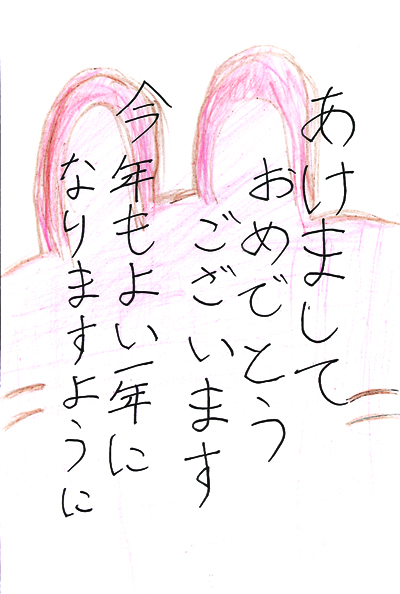 あけまして
おめでとう
ございます
今年もよい一年に
なりますように